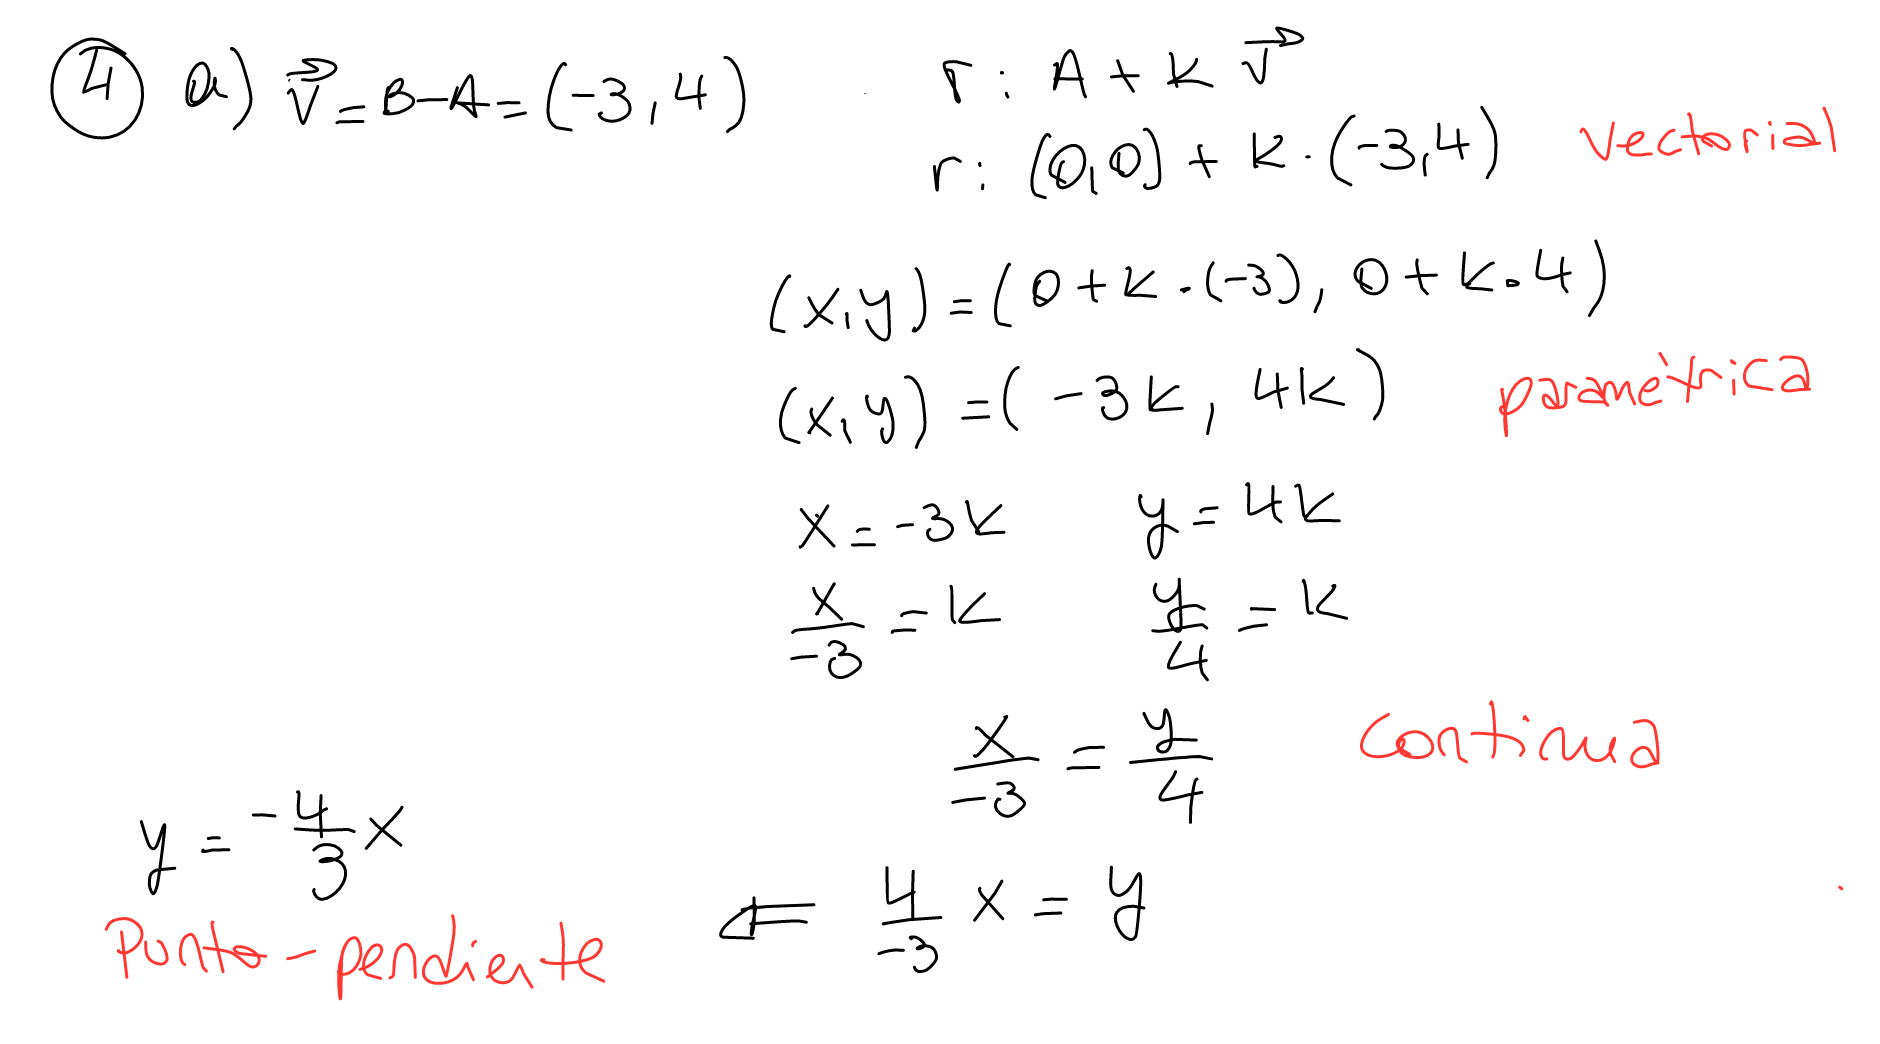 4 a) v⃗ = B-A = (-3,4)
r: A + k v⃗
r: (0,0) + k·(-3,4) vectorial
(x,y) = (0+k·(-3), 0+k·4)
(x,y) = (-3k, 4k) paramétrica
x = -3k y = 4k
x/-3 = k y/4 = k
x/-3 = y/4 continua
4/-3 x = y
⇐
y = -4/3 x
Punto-pendiente